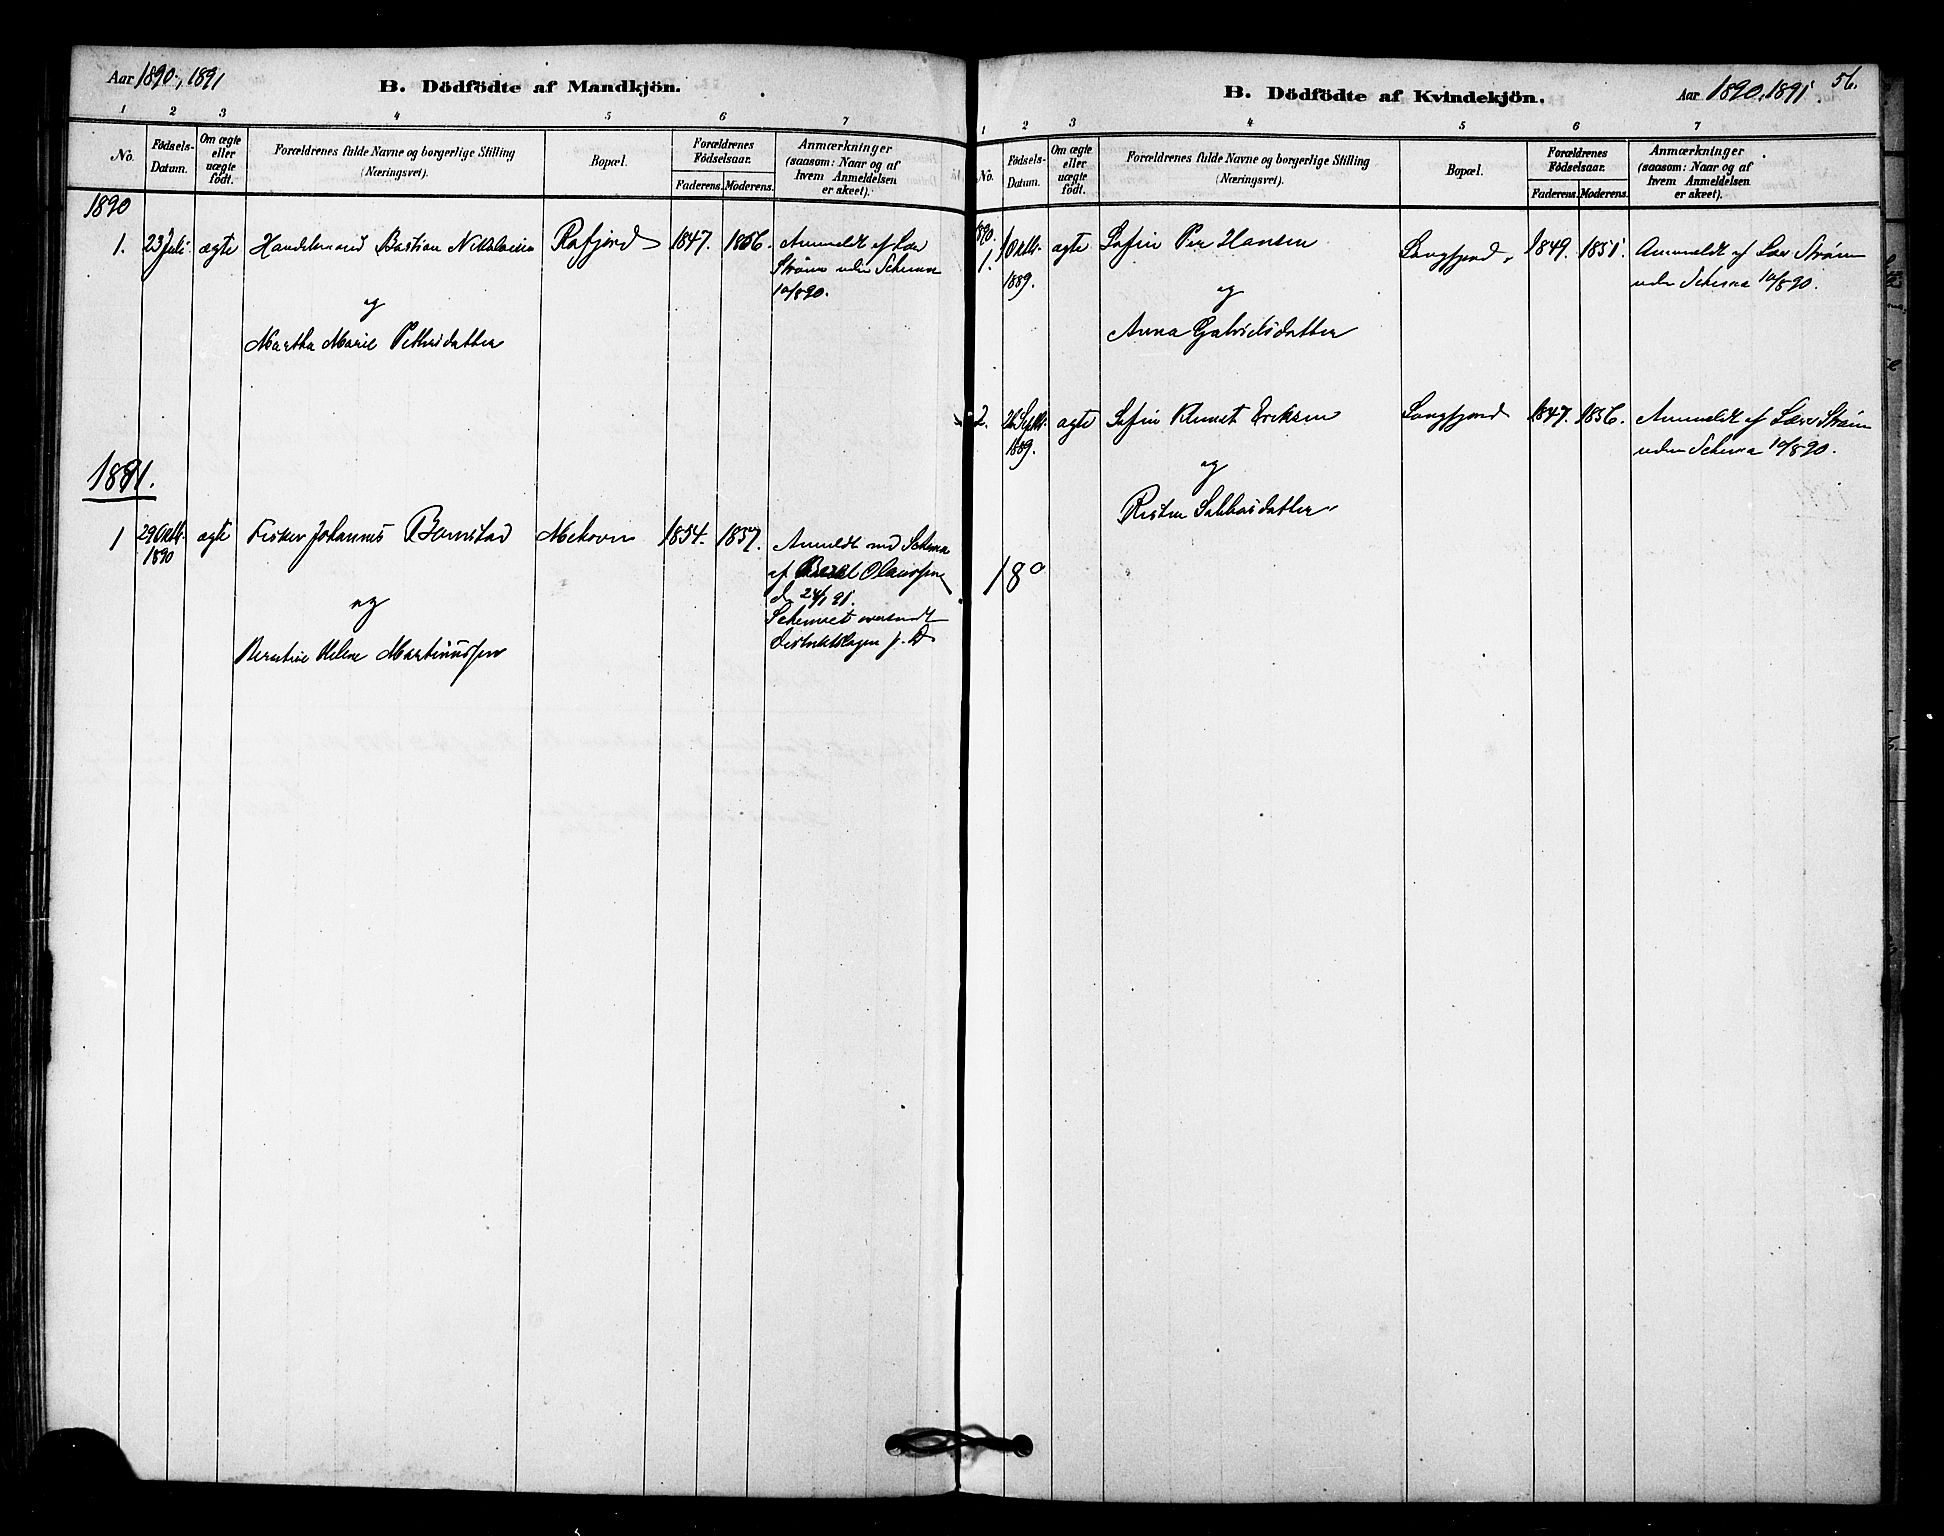 Aar 1890, 1891
B. Dödfödte af Mandkjön.
1 2 3 4 5 6 7
No.
Födsels-Datum.
Om ægte eller uægte födt.
Forældrenes fulde Navne og borgerlige Stilling (Næringsvei).
Bopæl.
Forældrenes Födselsaar.
Faderens. Moderens.
Anmærkninger (saasom: Naar og af hvem Anmeldelsen er skeet).
1890
1. 23 Juli ægte Handelsmand Bastian Nikolaisen Rafjord 1847. 1856. Anmeldt af Lær
Strøm uden Schema
10/8 90.
og
Martha Marie Pettersdatter
1891.
1 29 Oktb. 1890 ægte Fisker Johannes Bomstad Mehavn 1854. 1857. Anmeldt med Schema
af Olaussen
d. 24/1 91.
Schemaet oversendt
Distriktslægen s. D.
og
Berntine Helene Martinussen
56.
B. Dödfödte af Kvindekjön.
Aar 1890, 1891.
1 2 3 4 5 6 7
No.
Födsels-Datum.
Om ægte eller uægte födt.
Forældrenes fulde Navne og borgerlige Stilling (Næringsvei).
Bopæl.
Forældrenes Födselsaar.
Faderens. Moderens.
Anmærkninger (saasom: Naar og af hvem Anmeldelsen er skeet).
1890.
1. 1 Oktb. 1889. ægte Søfin Per Hansen Langfjord 1849. 1851. Anmeldt af Lær Strøm
uden Schema 10/8 90.
og
Anna Gabrielsdatter
2. 26 Septb. 1889. ægte Søfin Klemet Eriksen Langfjord 1847. 1856. Anmeldt af Lær Strøm
uden Schema 10/8 90.
og
Risten Sabbasdatter
18